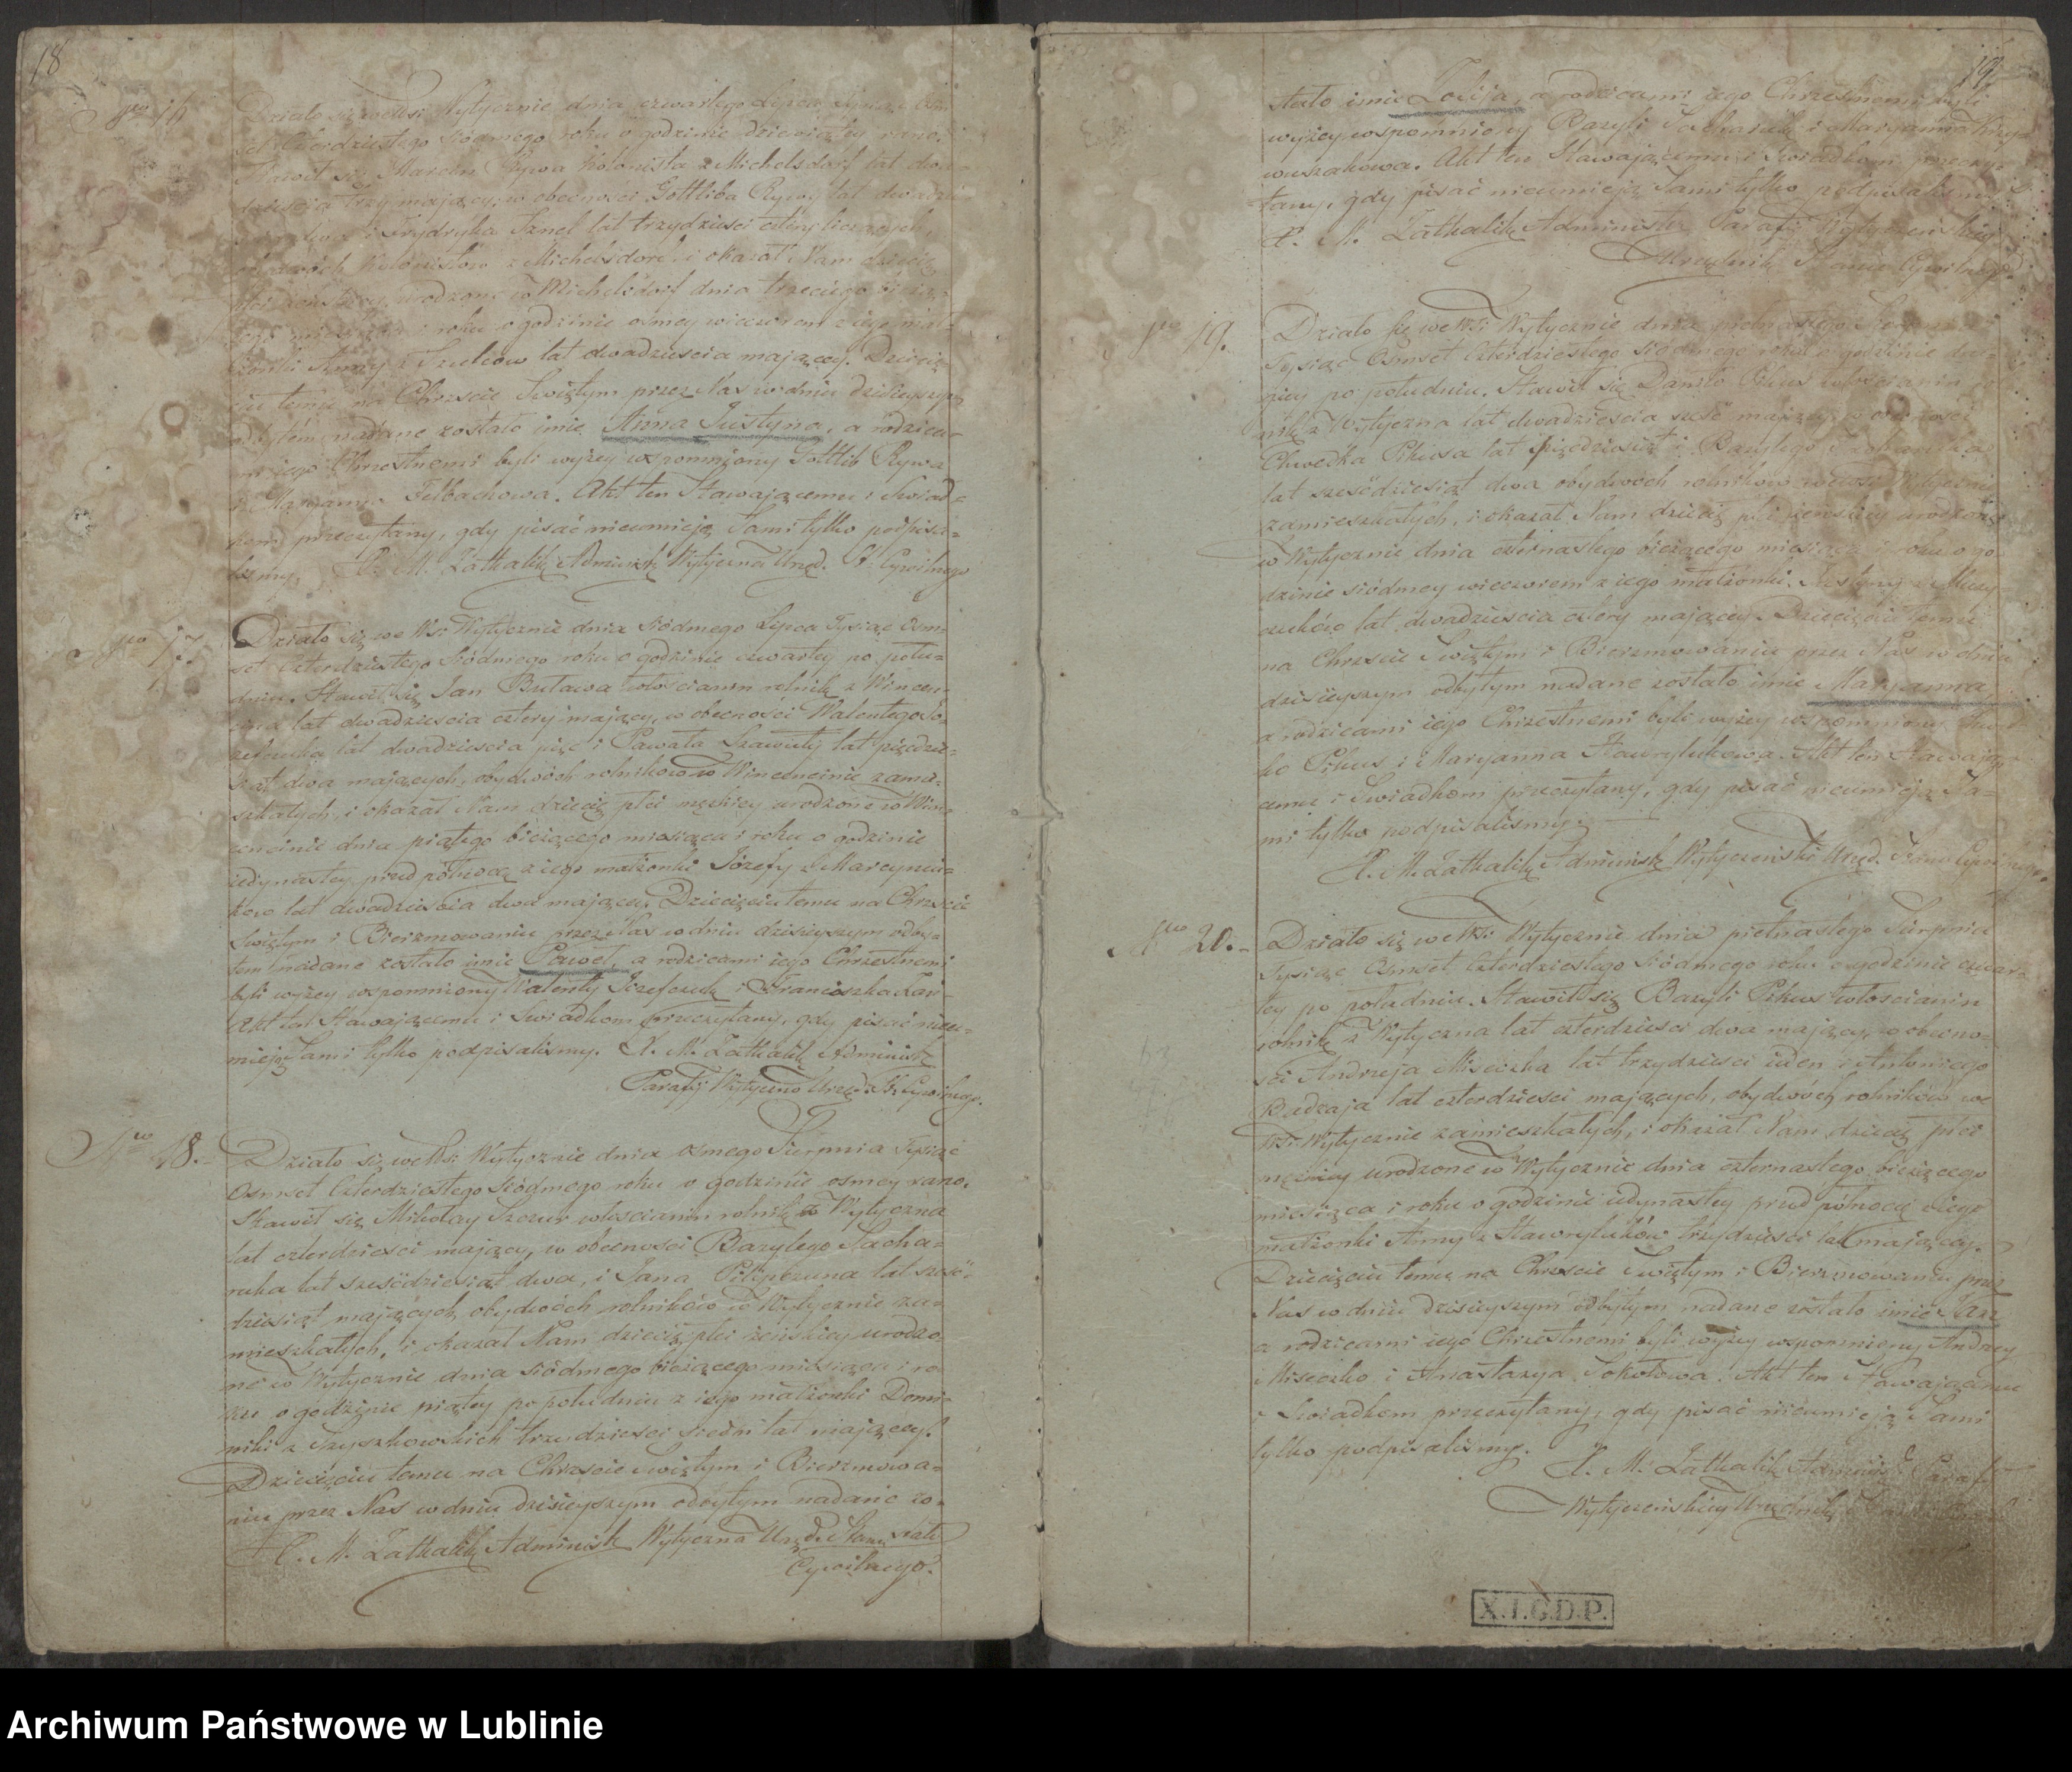 18
Nro 16
Działo się we Wsi Wytycznie dnia czwartego Lipca Tysiąc Osm
set Czterdziestego Siódmego roku o godzinie dziewiątey rano.
Stawił się Marcin Rywa Kolonista z Michelsdorf lat dwa
dzieścia trzy mający, w obecności Gottliba Rywy lat dwadzie
i Frydryka Sznel lat trzydzieści cztery liczących,
obydwóch Kolonistów z Michelsdorf i okazał Nam dziecię
płci urodzone w Michelsdorf dnia trzeciego bieżą
cego miesiąca i roku o godzinie osmey wieczorem z iego mał
żonki Anny z Szulców lat dwadzieścia maiącey. Dziecię
ciu temu na Chrzcie Świętym przez Nas w dniu dzisieyszym
odbytem nadane zostało imie Anna Justyna, a rodzica
mi iego Chrzestnemi byli wyżey wspomniony Gottlib Rywa
i Maryanna Felbachowa. Akt ten Stawaiącemu i Świad=
kom przeczytany, gdy pisać nieumieją Sami tylko podpisa=
liśmy. X. M. Zatkalik Administr Wytyczna Urzęd. S. Cywilnego
Nro 17
Działo się we Wsi Wytycznie dnia Siódmego Lipca Tysiąc Osm=
set Czterdziestego Siódmego roku o godzinie czwartey po połu=
dniu. Stawił się Jan Buława włościanin rolnik z Wincen=
cina lat dwadzieścia cztery mający, w obecności Walentego Jó
zefczuka lat dwadzieścia pięć i Pawła Szawuły lat pięćdzie=
siąt dwa maiących, obydwóch rolników w Wincencinie zamie=
szkałych, i okazał Nam dziecię płci męzkiey urodzone w Win=
cencinie dnia piątego bieżącego miesiąca i roku o godzinie
iedynastey przed północą z iego małżonki Józefy z Marcyniu=
ków lat dwadzieścia dwa maiącey. Dziecięciu temu na Chrzcie
Świętym i Bierzmowaniu przez Nas w dniu dzisieyszym odby=
tem nadane zostało imie Paweł, a rodzicami iego Chrzestnemi
byli wyżey wspomniony Walenty Józefczuk i Franciszka
Akt ten Stawaiącemu i Świadkom przeczytany, gdy pisać nieu=
mieją Sami tylko podpisaliśmy. X. M. Zatkalik Administr
Parafij Wytyczno Urzęd. S. Cywilnego.
Nro 18.
Działo się we Wsi Wytycznie dnia osmego Sierpnia Tysiąc
Osmset Czterdziestego Siódmego roku o godzinie osmey rano.
Stawił się Mikołay Szczur włościanin rolnik z Wytyczna
lat czterdzieści mający, w obecności Bazylego Sacha=
ruka lat sześćdziesiąt dwa, i Jana Pilipczuna lat sześć=
dziesiąt maiących obydwóch rolników w Wytycznie za=
mieszkałych, i okazał Nam dziecię płci żeńskiey urodzo
ne w Wytycznie dnia siódmego bieżącego miesiąca i ro=
ku o godzinie piątey po południu z iego małżonki Domi=
niki z Szyszkowskich trzydzieści siedm lat maiącey.
Dziecięciu temu na Chrzcie Świętym i Bierzmowa=
niu przez Nas w dniu dzisieyszym odbytym nadane zo=
stało
X. M. Zatkalik Administr Wytyczna Urzęd. Stanu
Cywilnego.
19
stało imie Zofija, a rodzicami iego Chrzestnemi byli
wyżey wspomniony Bazyli Sacharuk i Maryanna
. Akt ten Stawaiącemu i Świadkom przeczy=
tany, gdy pisać nieumieją Sami tylko podpisaliśmy
X. M. Zatkalik Administr Parafij Wytyczeńskiey
Urzędnik Stanu Cywilnego.
Nro 19.
Działo się we Wsi Wytycznie dnia piętnastego Sierpnia
Tysiąc Osmset Czterdziestego Siódmego roku o godzinie
po południu. Stawił się Daniło Pikus włościanin rol
nik z Wytyczna lat dwadzieścia sześć maiący, w obecności
Chwedka Pikusa lat pięćdziesiąt i Bazylego Sacharuka
lat sześćdziesiąt dwa obydwóch rolników we Wsi Wytycznie
zamieszkałych, i okazał Nam dziecię płci żeńskiey urodzone
w Wytycznie dnia czternastego bieżącego miesiąca i roku o go=
dzinie siódmey wieczorem z iego małżonki Justyny z
czuków lat dwadzieścia cztery maiącey. Dziecięciu temu
na Chrzcie Świętym i Bierzmowaniu przez Nas w dniu
dzisieyszym odbytym nadane zostało imie Maryanna,
a rodzicami iego Chrzestnemi byli wyżey wspomniony Chwed
ko Pikus i Maryanna Hawrylukowa. Akt ten Stawaią=
cemu i Świadkom przeczytany, gdy pisać nieumieją Sa=
mi tylko podpisaliśmy.
X. M. Zatkalik Administr Wytyczeński Urzęd. Stanu Cywilnego.
Nro 20.
Działo się we Wsi Wytycznie dnia piętnastego Sierpnia
Tysiąc Osmset Czterdziestego Siódmego roku o godzinie czwar=
tey po południu. Stawił się Bazyli Pikus włościanin
rolnik z Wytyczna lat czterdzieści dwa maiący, w obecno=
ści Andrzeja Miseczka lat trzydzieści ieden i Antoniego
Badzaja lat czterdzieści maiących, obydwóch rolników we
Wsi Wytycznie zamieszkałych, i okazał Nam dziecię płci
męzkiey urodzone w Wytycznie dnia czternastego bieżącego
miesiąca i roku o godzinie iedynastey przed północą z iego
małżonki Anny z Hawryluków trzydzieści lat maiącey.
Dziecięciu temu na Chrzcie Świętym i Bierzmowaniu przez
Nas w dniu dzisieyszym odbytym nadane zostało imie Jan
a rodzicami iego Chrzestnemi byli wyżey wspomniony Andrzey
Miseczko i Anastazya Sokołowa. Akt ten Stawaiącemu
i Świadkom przeczytany, gdy pisać nieumieją Sami
tylko podpisaliśmy.
X. M. Zatkalik Administr Paraf
Wytyczeńskiey Urzędnik
X.I.G.D.P.
Archiwum Państwowe w Lublinie